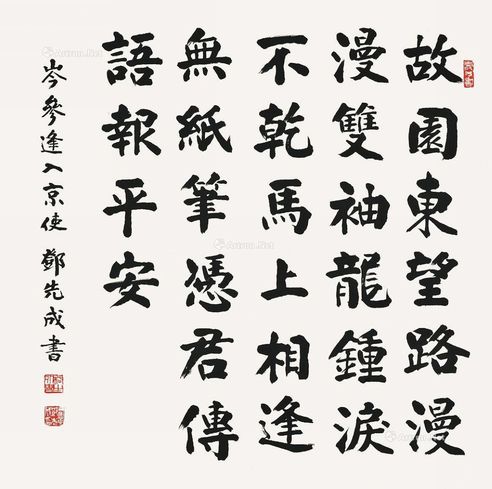 故園東望路漫
漫雙袖龍鍾淚
不乾馬上相逢
無紙筆憑君傳
語報平安
岑參逢入京使 鄧先成書